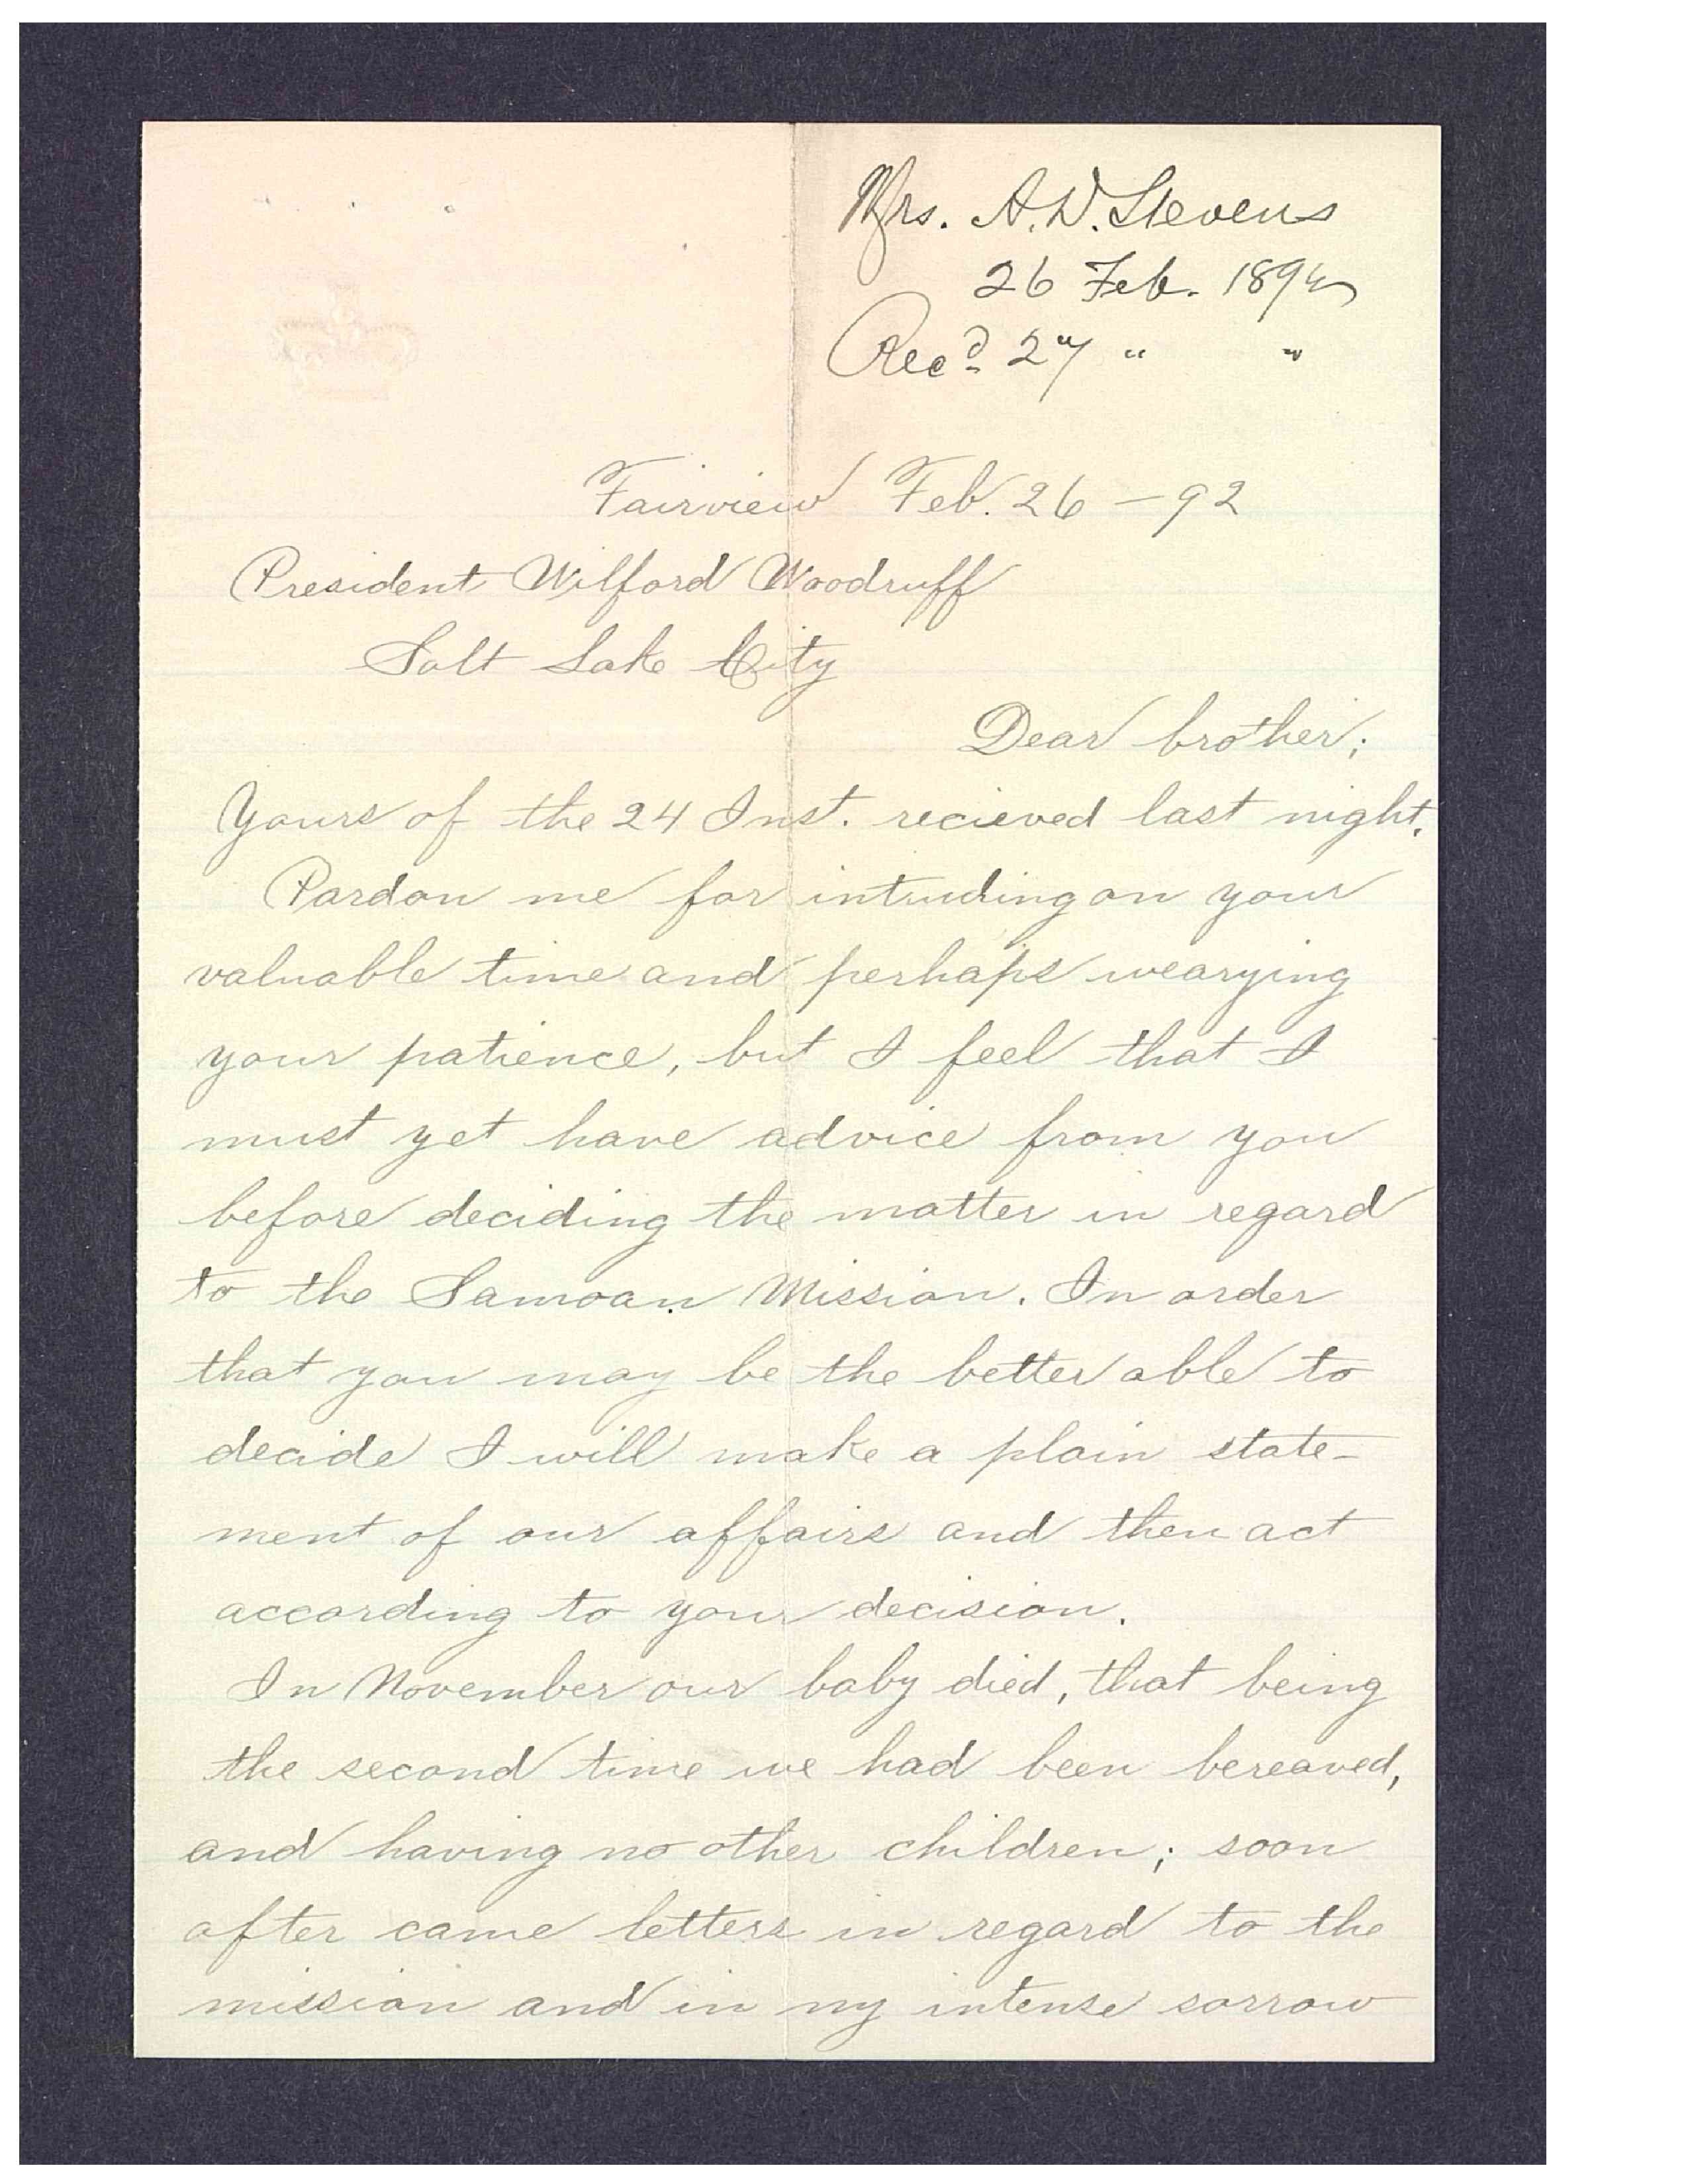 Mrs. A. D. Stevens
26 Feb. 1892
Recd 27 " "
Fairview Feb. 26 – 92
President Wilford Woodruff
Salt Lake City
Dear brother;
Yours of the 24 Inst. recieved last night.
Pardon me for intruding on your
valuable time and perhaps wearying
your patience, but I feel that I
must yet have advice from you
before deciding the matter in regard
to the Samoan Mission. In order
that you may be the better able to
decide I will make a plain state-
ment of our affairs and then act
according to your decision.
In November our baby died, that being
the second time we had been bereaved,
and having no other children; soon
after came letters in regard to the
mission and in my intense sorrow